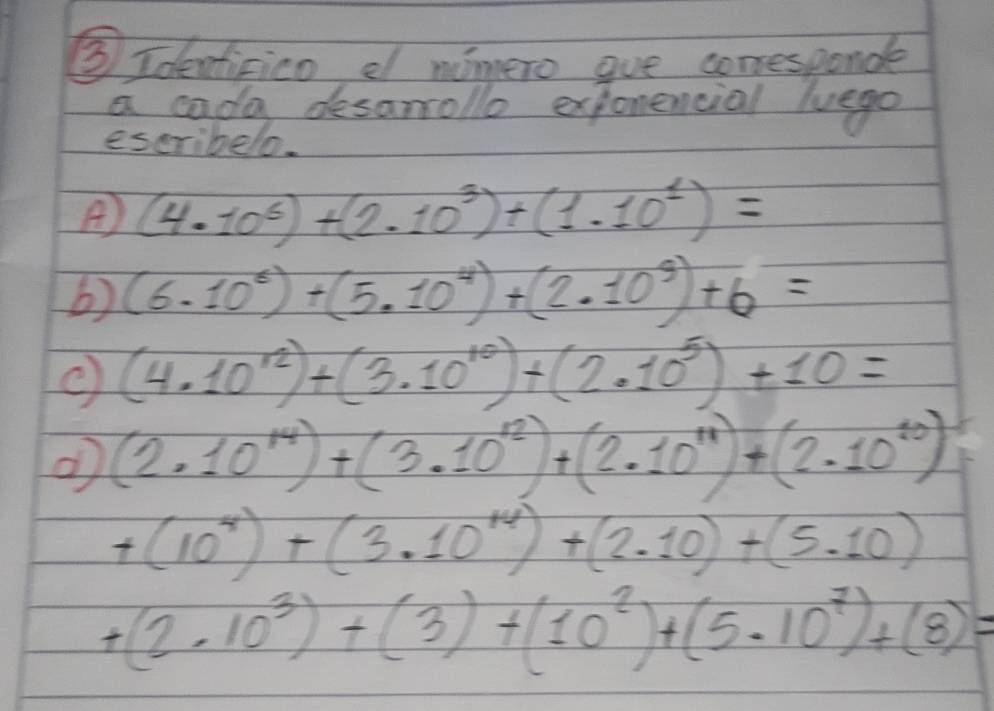 ③ Identifico el número que corresponde
a cada desarrollo exponencial luego
escribelo.
A) (4.10⁵) + (2.10³) + (1.10¹) =
b) (6.10⁶) + (5.10⁴) + (2.10³) + 6 =
c) (4.10¹²) + (3.10¹⁰) + (2.10⁵) + 10 =
d) (2.10¹⁴) + (3.10¹²) + (2.10¹¹) + (2.10¹⁰)
+ (10⁴) + (3.10¹⁴) + (2.10) + (5.10)
+ (2.10³) + (3) + (10²) + (5.10⁷) + (8) =